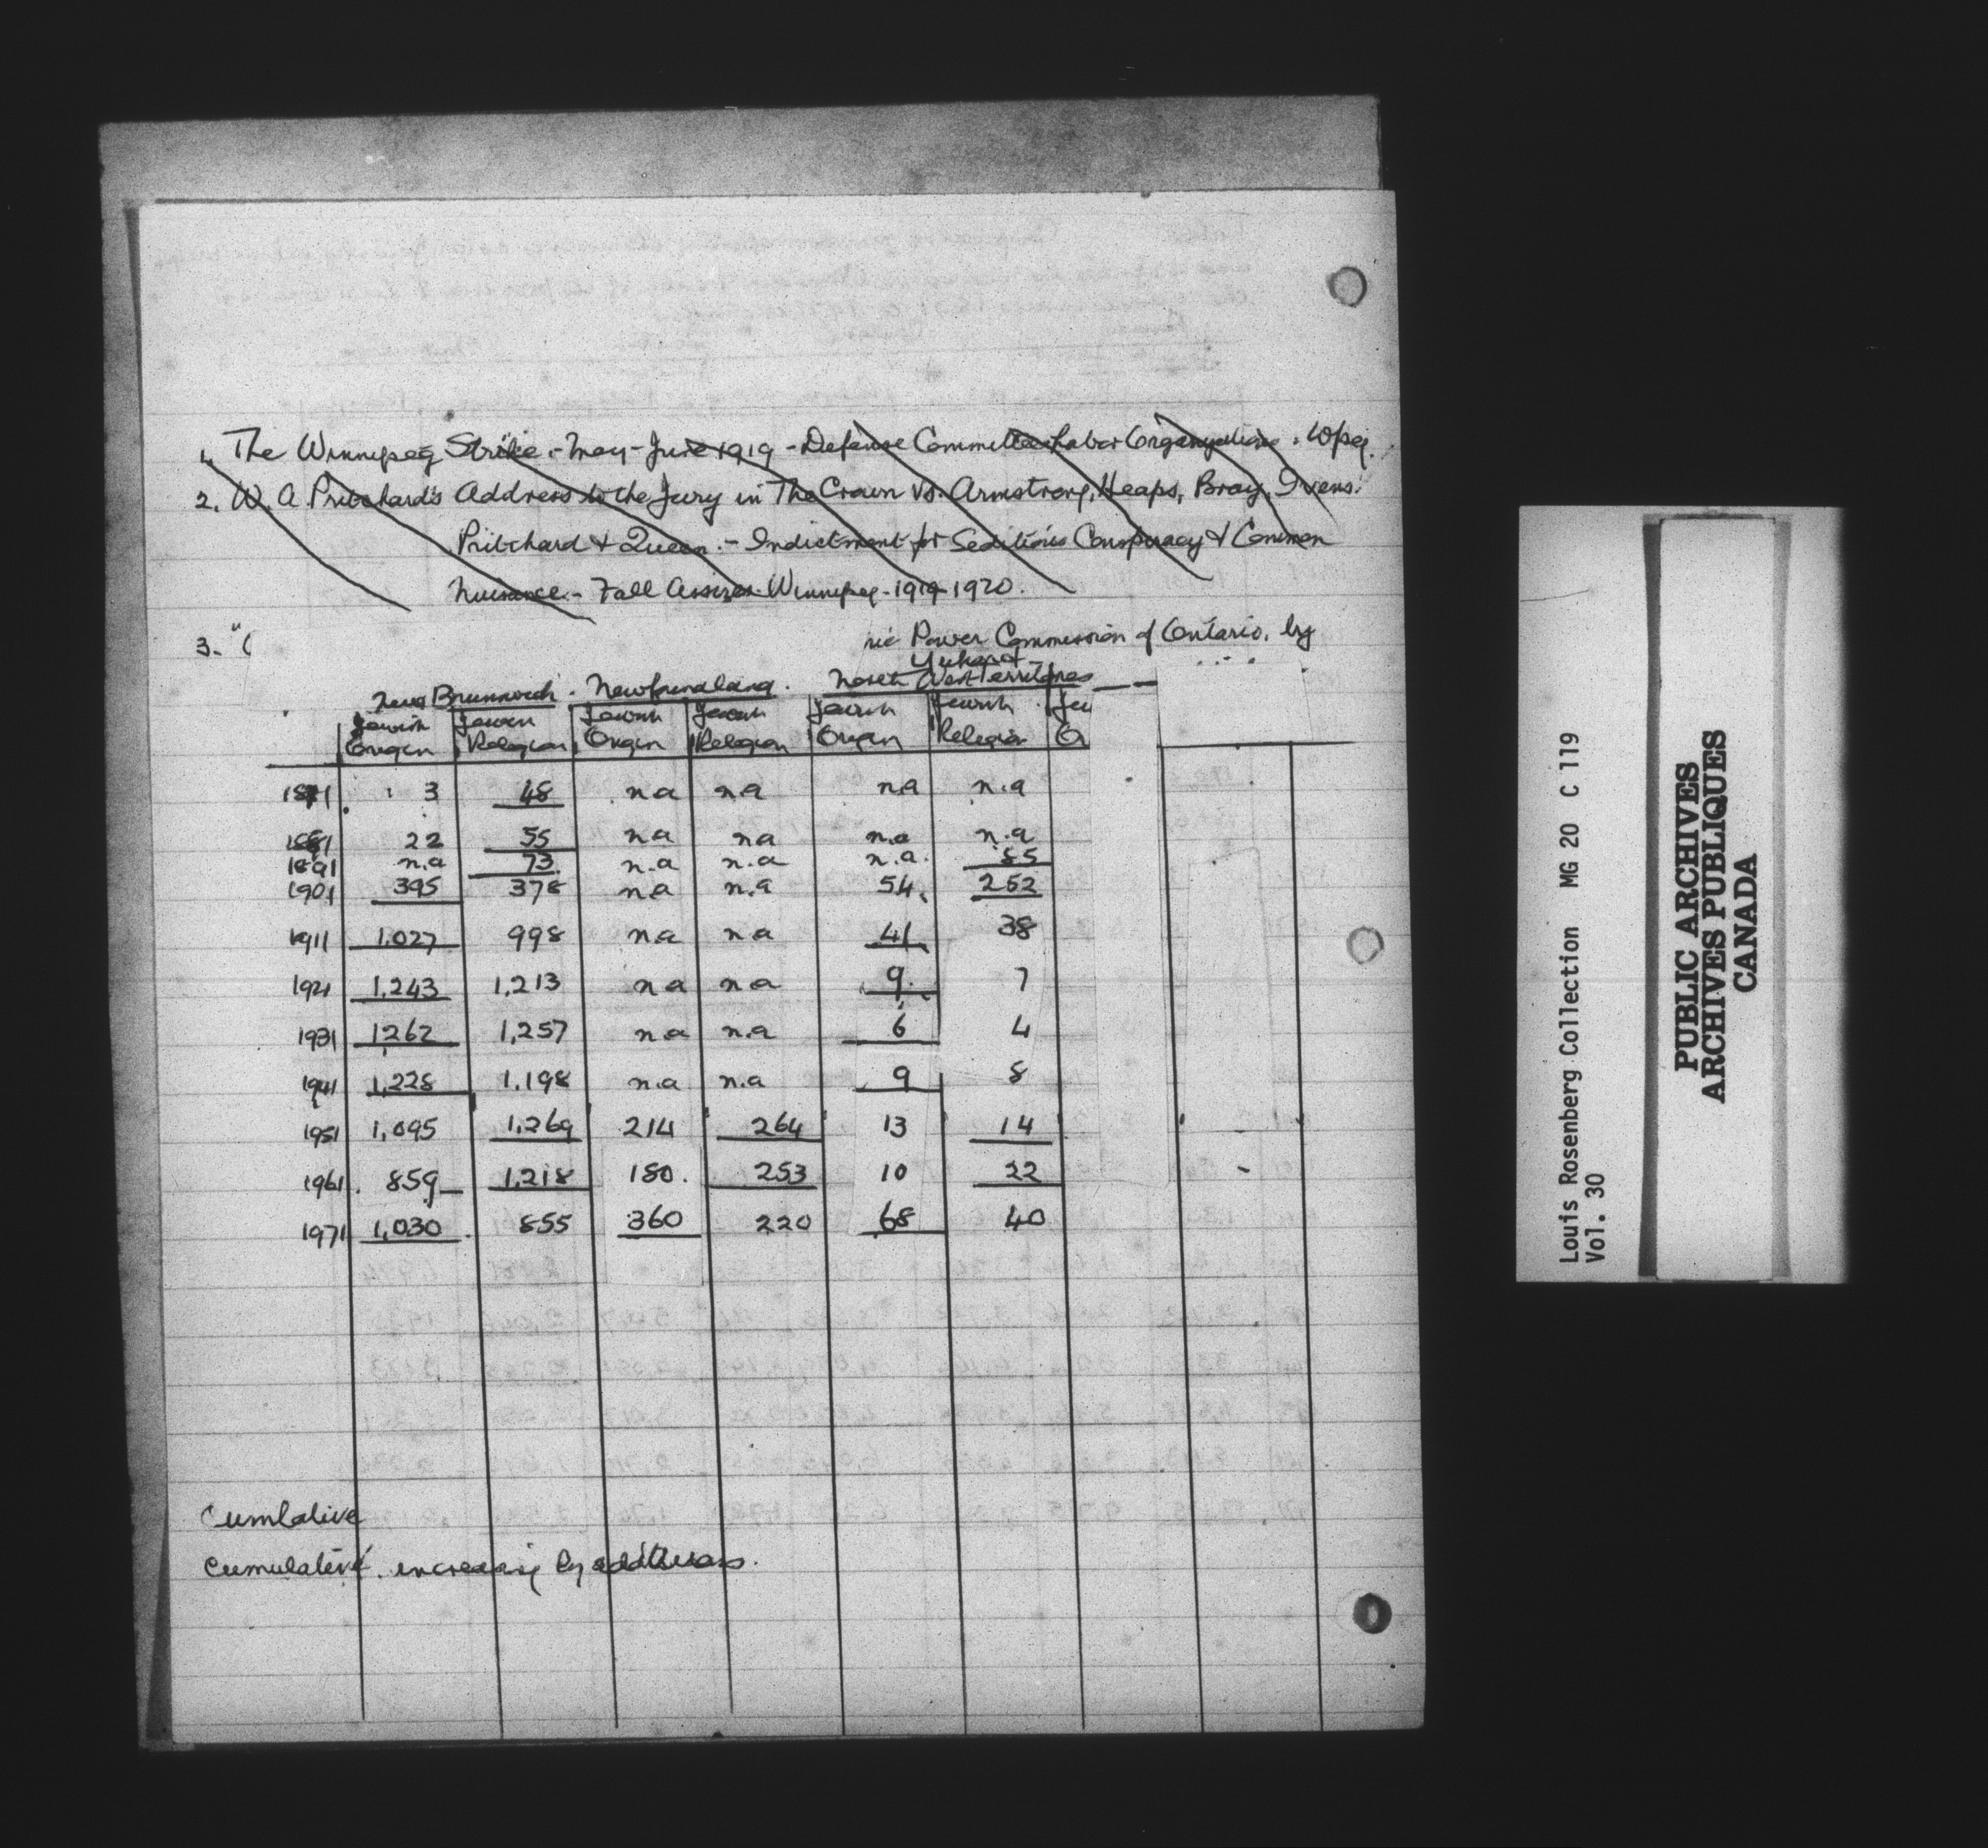 1. The Winnipeg Strike.- May - June 1919 - Defense Committee Labor Organizations. Wpeg.
2. W. A. Pritchard's Address to the Jury in The Crown vs. Armstrong, Heaps, Bray, Ivens.
Pritchard & Queen.- Indictment for Seditious Conspiracy & Common
Nuisance.- Fall Assizes Winnipeg - 1919-1920.
3. "(
ric Power Commission of Ontario, by
Yukon &
New Brunswick. Newfoundland. North West Territories
Jewish Jewish Jewish Jewish Jewish Jewish Je
Origin Religion Origin Religion Origin Religion O
1871 3 48 na na na n.a
1881 22 55 na na n.a n.a
1891 n.a 73 n.a n.a n.a. 85
1901 395 378 na n.a 54 252
1911 1,027 998 na na 41 38
1921 1,243 1,213 na na 9 7
1931 1262 1,257 na n.a 6 4
1941 1,228 1,198 n.a n.a 9 8
1951 1,095 1,269 214 264 13 14
1961 859 1,218 180. 253 10 22
1971 1,030 855 360 220 68 40
Cumlative
Cumulative. increasing by additions.
Louis Rosenberg Collection MG 20 C 119
Vol. 30
PUBLIC ARCHIVES
ARCHIVES PUBLIQUES
CANADA